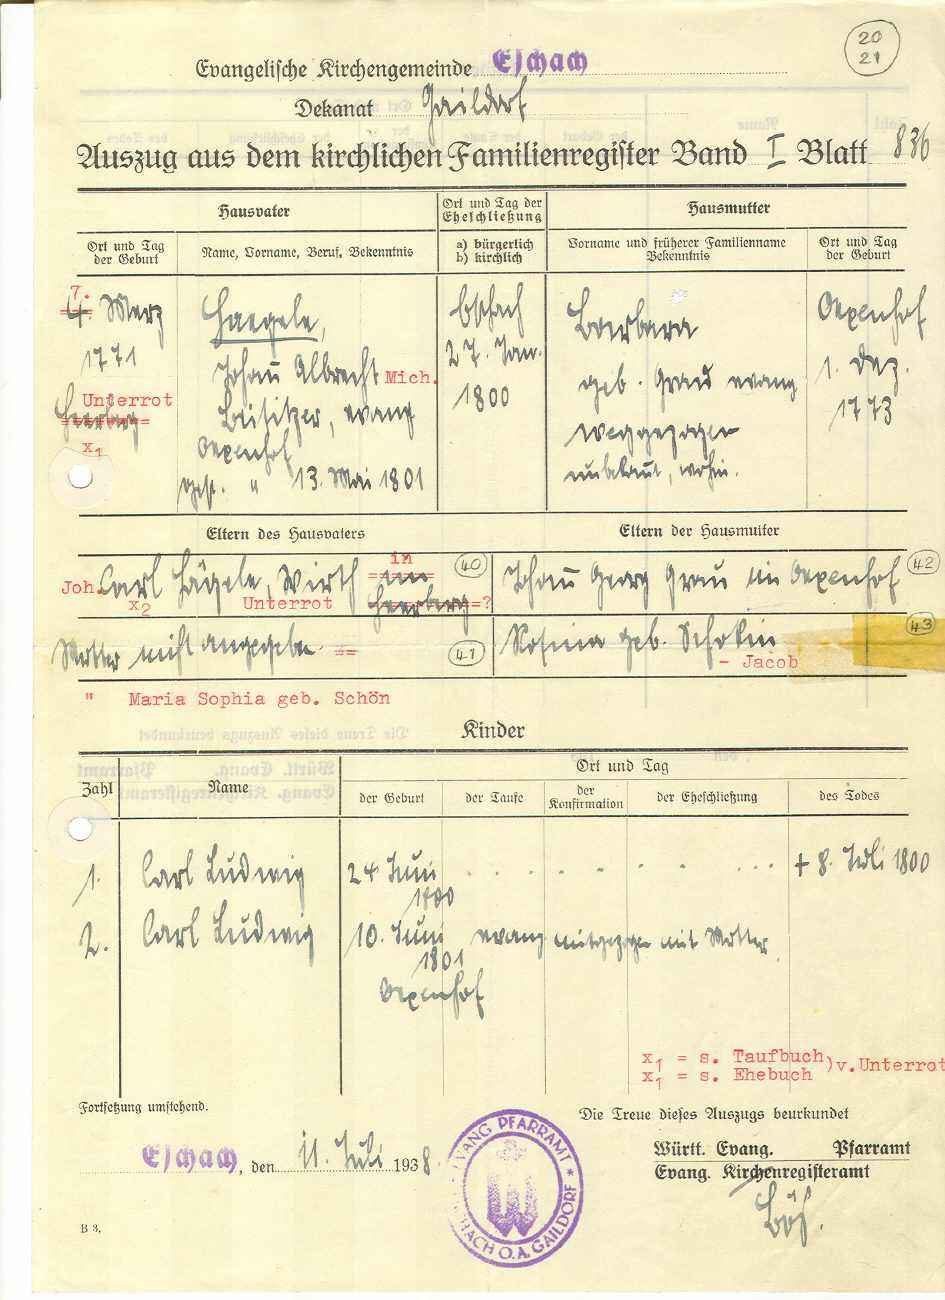 20
21
Evangelische Kirchengemeinde Eschach
Dekanat Gaildorf
Auszug aus dem kirchlichen Familienregister Band I Blatt 836
Hausvater
Ort und Tag der Eheschließung
Hausmutter
Ort und Tag der Geburt
Name, Vorname, Beruf, Bekenntnis
a) bürgerlich
b) kirchlich
Vorname und früherer Familienname
Bekenntnis
Ort und Tag der Geburt
7.
4. Merz
1771
Unterrot
Heerberg
x1
Haegele,
Johann Albrecht Mich.
Beisitzer, evang
Oexenhof
gest. " 13. Mai 1801
Eschach
27. Jan.
1800
Barbara
geb. Grau evang
weggezogen
unbekannt, wohin.
Oexenhof
1. Dez.
1773
Eltern des Hausvaters
Eltern der Hausmutter
Joh. Carl Hägele, Wirth in
x2 Unterrot Heerberg =?
40
Johann Georg Grau im Oexenhof
42
Mutter nicht angegeben ==
41
Rosina geb. Schokin
- Jacob
43
" Maria Sophia geb. Schön
Kinder
Zahl
Name
Ort und Tag
der Geburt
der Taufe
der Konfirmation
der Eheschließung
des Todes
1. Carl Ludwig 24 Juni + 8. Juli 1800
1800
2. Carl Ludwig 10. Juni evang mitgezogen mit Mutter.
1801
Oexenhof
x1 = s. Taufbuch
x1 = s. Ehebuch )v. Unterrot
Fortsetzung umstehend.
Die Treue dieses Auszugs beurkundet
Eschach, den 11. Juli 1938.
Württ. Evang. Pfarramt
Evang. Kirchenregisteramt
EVANG PFARRAMT * ESCHACH O.A. GAILDORF
B 3.